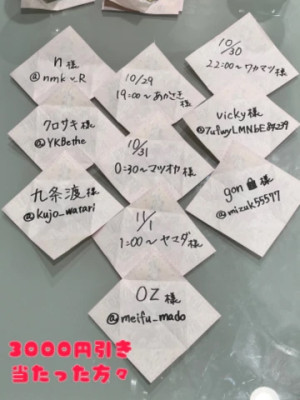 n 様
@nmk_v_R
10/29
19:00〜あかさき様
10/30
22:00〜ワカマツ様
クロサキ様
@YKBethe
10/31
0:30〜マツオカ様
vicky様
九条渡様
@kujo_watari
11/1
1:00〜ヤマダ様
gon🔒様
@mizuk55577
OZ 様
@meifu_mado
3000円引き
当たった方々